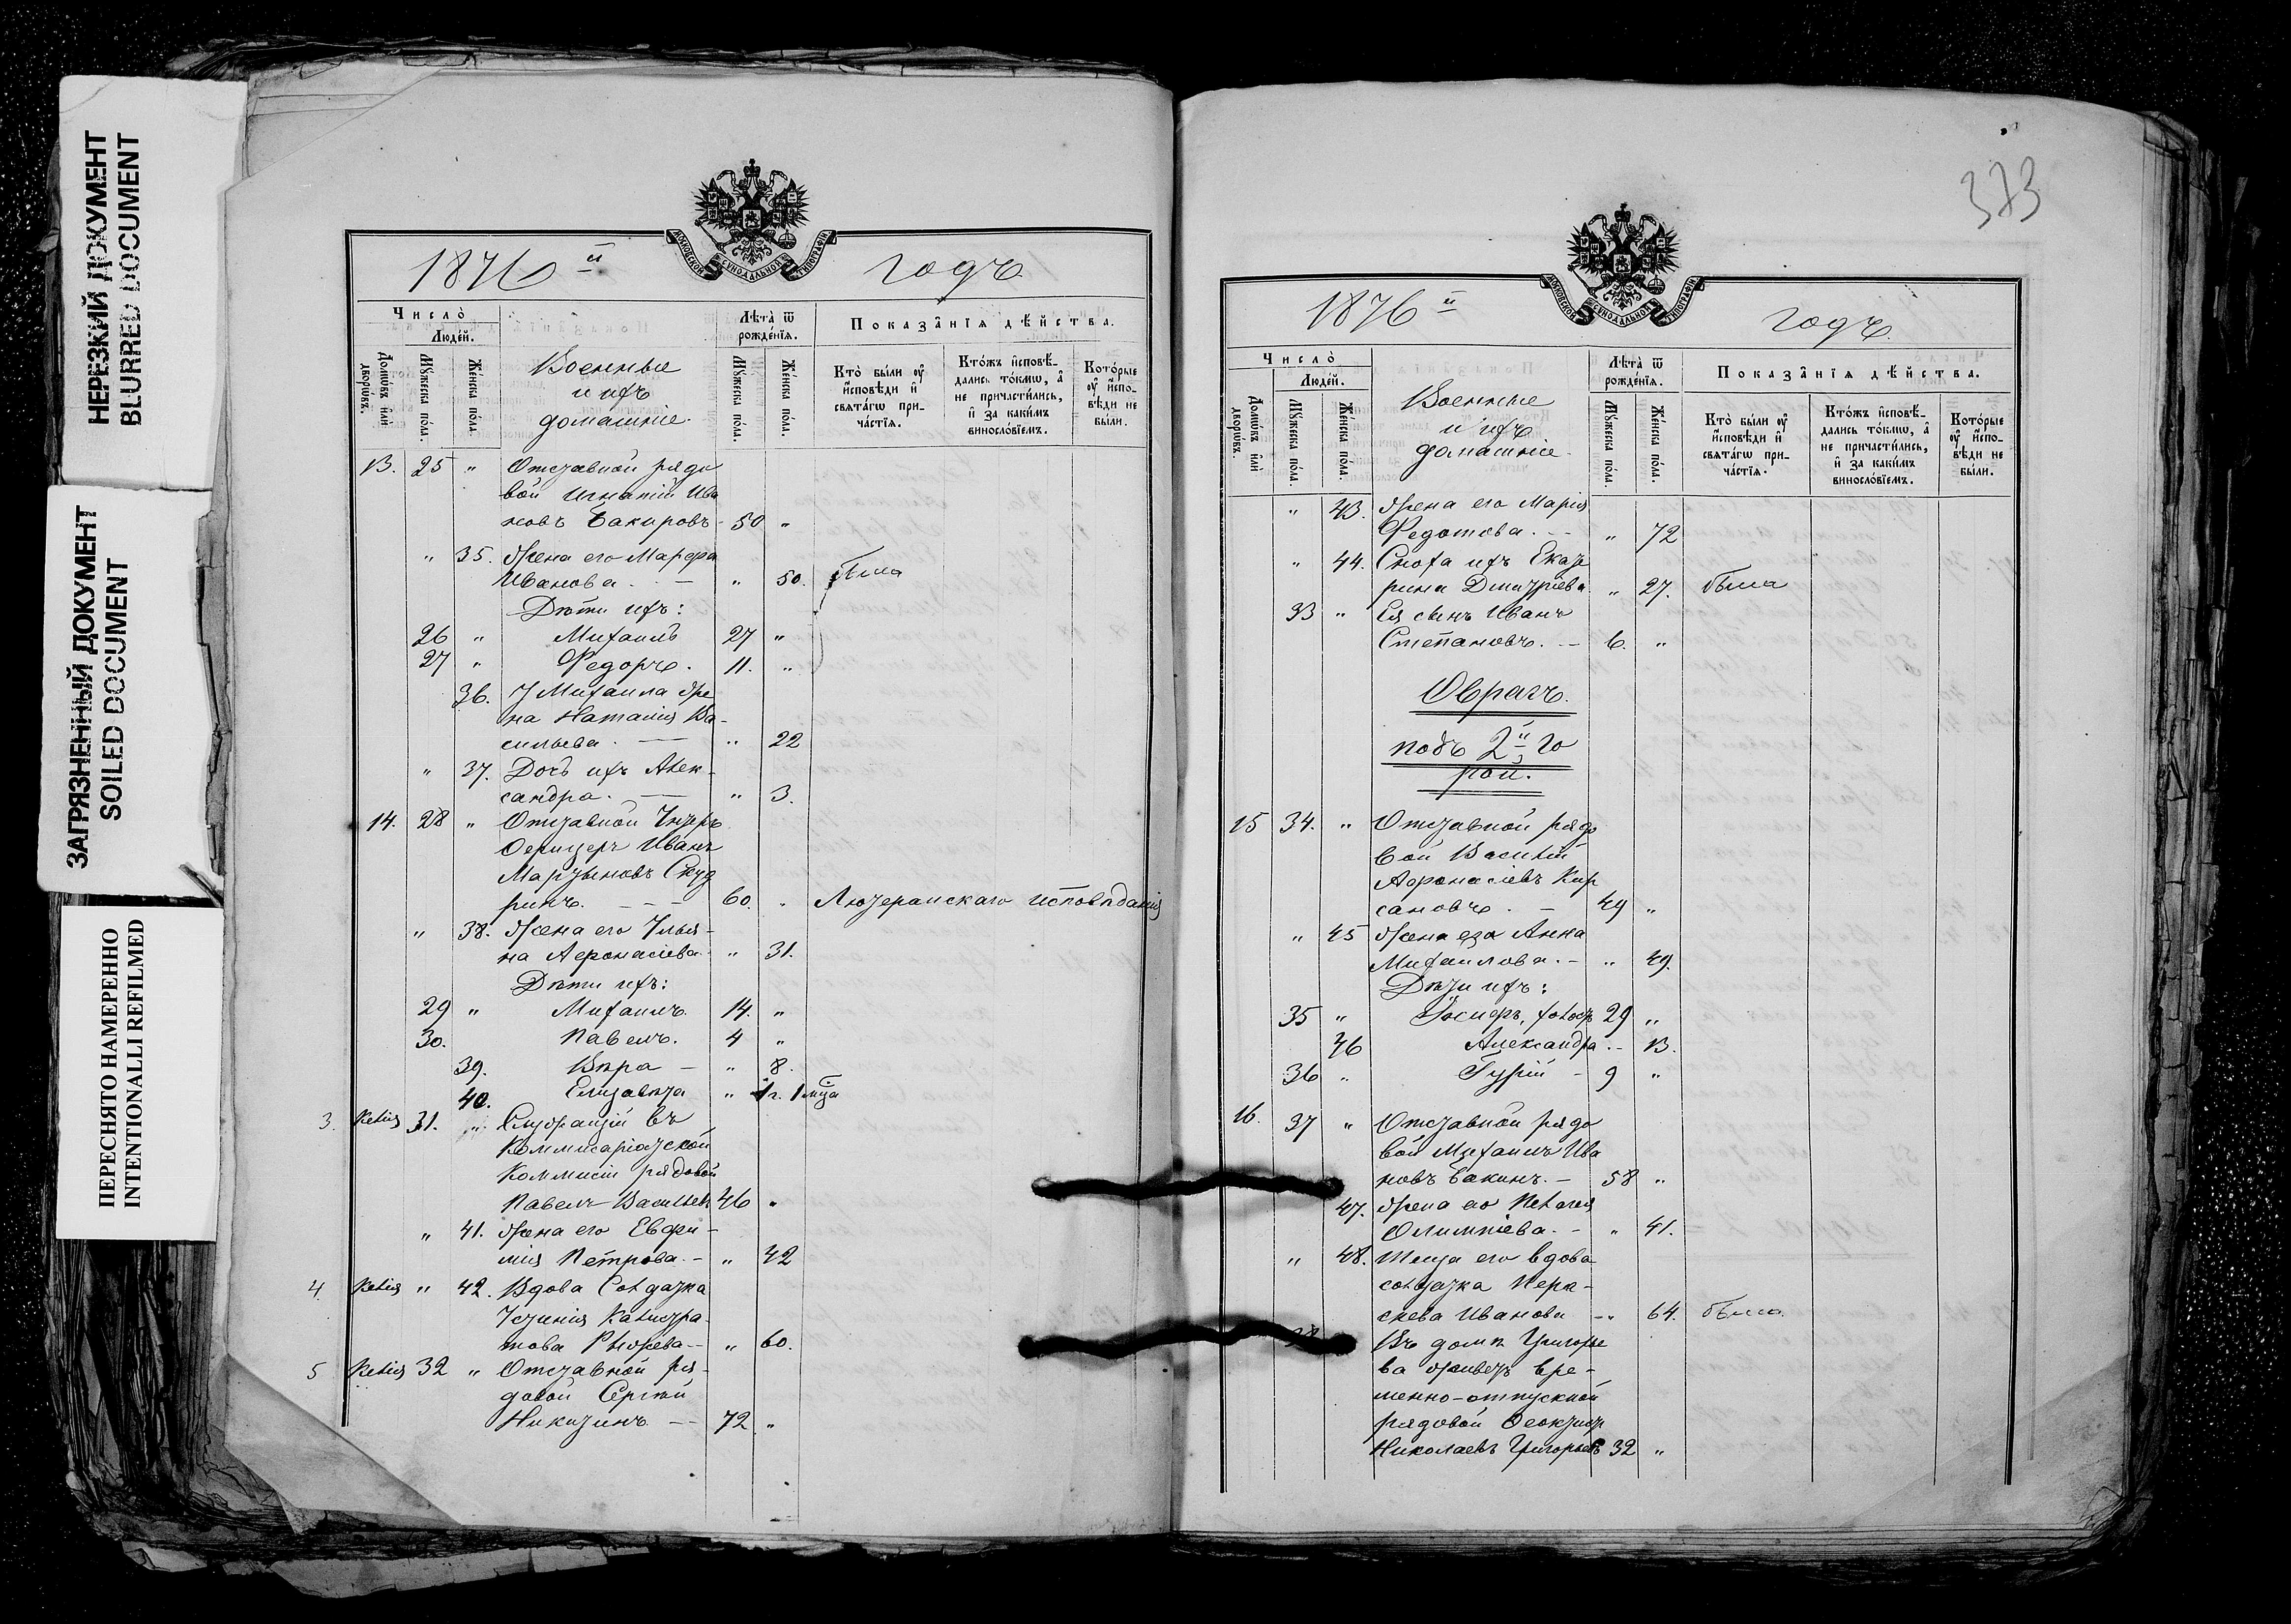 НЕРЕЗКИЙ ДОКУМЕНТ
BLURRED DOCUMENT
ЗАГРЯЗНЕННЫЙ ДОКУМЕНТ
SOILED DOCUMENT
ПЕРЕСНЯТО НАМЕРЕННО
INTENTIONALLI REFILMED
1876й годъ
МОСКОВСКОЙ СУНОДАЛЬНОЙ ТИПОГРАФІИ
Число̀
Людéй.
Домѡ́въ и҆лѝ дворѡ́въ.
Мꙋ́жеска по́ла.
Же́нска по́ла.
Военные
и ихъ
домашніе.
Лѣ́та ѿ рожде́нїѧ.
Мꙋ́жеска по́ла.
Же́нска по́ла.
Показа̑нїѧ дѣ́йства.
Кто̀ бы́ли ᲂу҆ и҆сповѣди и҆ свѧта́гѡ прича́стїѧ.
Кто́жъ и҆сповѣ́дались то́кмѡ, а҆ не причасти́лись, и҆ за каки́мъ винословїемъ.
Кото́рые ᲂу҆ и҆сповѣди не бы́ли.
13. 25 " Отставной рядо
вой Игнатій Ива
новъ Бакировъ - 50 "
" 35. Жена его Марфа
Иванова. - " 50. были
Дѣти ихъ:
26 " Михаилъ 27 "
27 " Федоръ. 11. "
36. У Михаила же
на Наталія Ва-
сильева. — " 22
" 37. Дочь ихъ Алек-
сандра. — " 3.
14. 28 " Отставной Унтеръ
Офицеръ Иванъ
Мартыновъ
ринъ. - - - 60. " Лютеранскаго исповѣданія
" 38. Жена его Улья-
на Афонасіева. " 31.
Дѣти ихъ:
29 " Михаилъ 14. "
30. Павелъ. 4 "
39. Вѣра - " 8.
40. Елизавета " 1 г. 1 мца
3. Келія 31. " Служащій въ
Коммисаріатской
Коммисіи рядовой
Павелъ Васильевъ 46 "
" 41. Жена его Евфи-
мія Петрова. - " 42
4. Келія " 42. Вдова Солдатка
Устинія Калистра
това - " 60.
5 Келія 32 " Отставной ря-
довой Сергѣй
Никитинъ — 72 "
373
1876й годъ.
МОСКОВСКОЙ СУНОДАЛЬНОЙ ТИПОГРАФІИ
Число̀
Людéй.
Домѡ́въ и҆лѝ дворѡ́въ.
Мꙋ́жеска по́ла.
Же́нска по́ла.
Военные
и ихъ
домашніе.
Лѣ́та ѿ рожде́нїѧ.
Мꙋ́жеска по́ла.
Же́нска по́ла.
Показа̑нїѧ дѣ́йства.
Кто̀ бы́ли ᲂу҆ и҆сповѣди и҆ свѧта́гѡ прича́стїѧ.
Кто́жъ и҆сповѣ́дались то́кмѡ, а҆ не причасти́лись, и҆ за каки́мъ винословїемъ.
Кото́рые ᲂу҆ и҆сповѣди не бы́ли.
" 43. Жена его Марія
Федотова. - " 72
" 44. Сноха ихъ Екате
рина Дмитріева. " 27. была
33 " Ея сынъ Иванъ
Степановъ. — 6. "
Оврагъ.
подъ 2й го
рой.
15 34. " Отставной рядо
вой Василій
Афонасіевъ Кир
сановъ. - 49 "
" 45 Жена его Анна
Михаилова. - " 49.
Дѣти ихъ:
35 " Іосифъ, холост 29 "
46 Александра. - 13.
36 " Гурій - 9 "
16. 37 " Отставной рядо
вой Михаилъ Ива
новъ Бакинъ. - 58 "
47. Жена его Пелагея
Олимпіева. - " 41.
" 48. Теща его вдова
солдатка Пера-
скева Иванова - " 64. была.
Въ домѣ Григорье
ва живетъ вре-
менно-отпускной
рядовой Феоктист
Николаевъ Григорьевъ 32 "